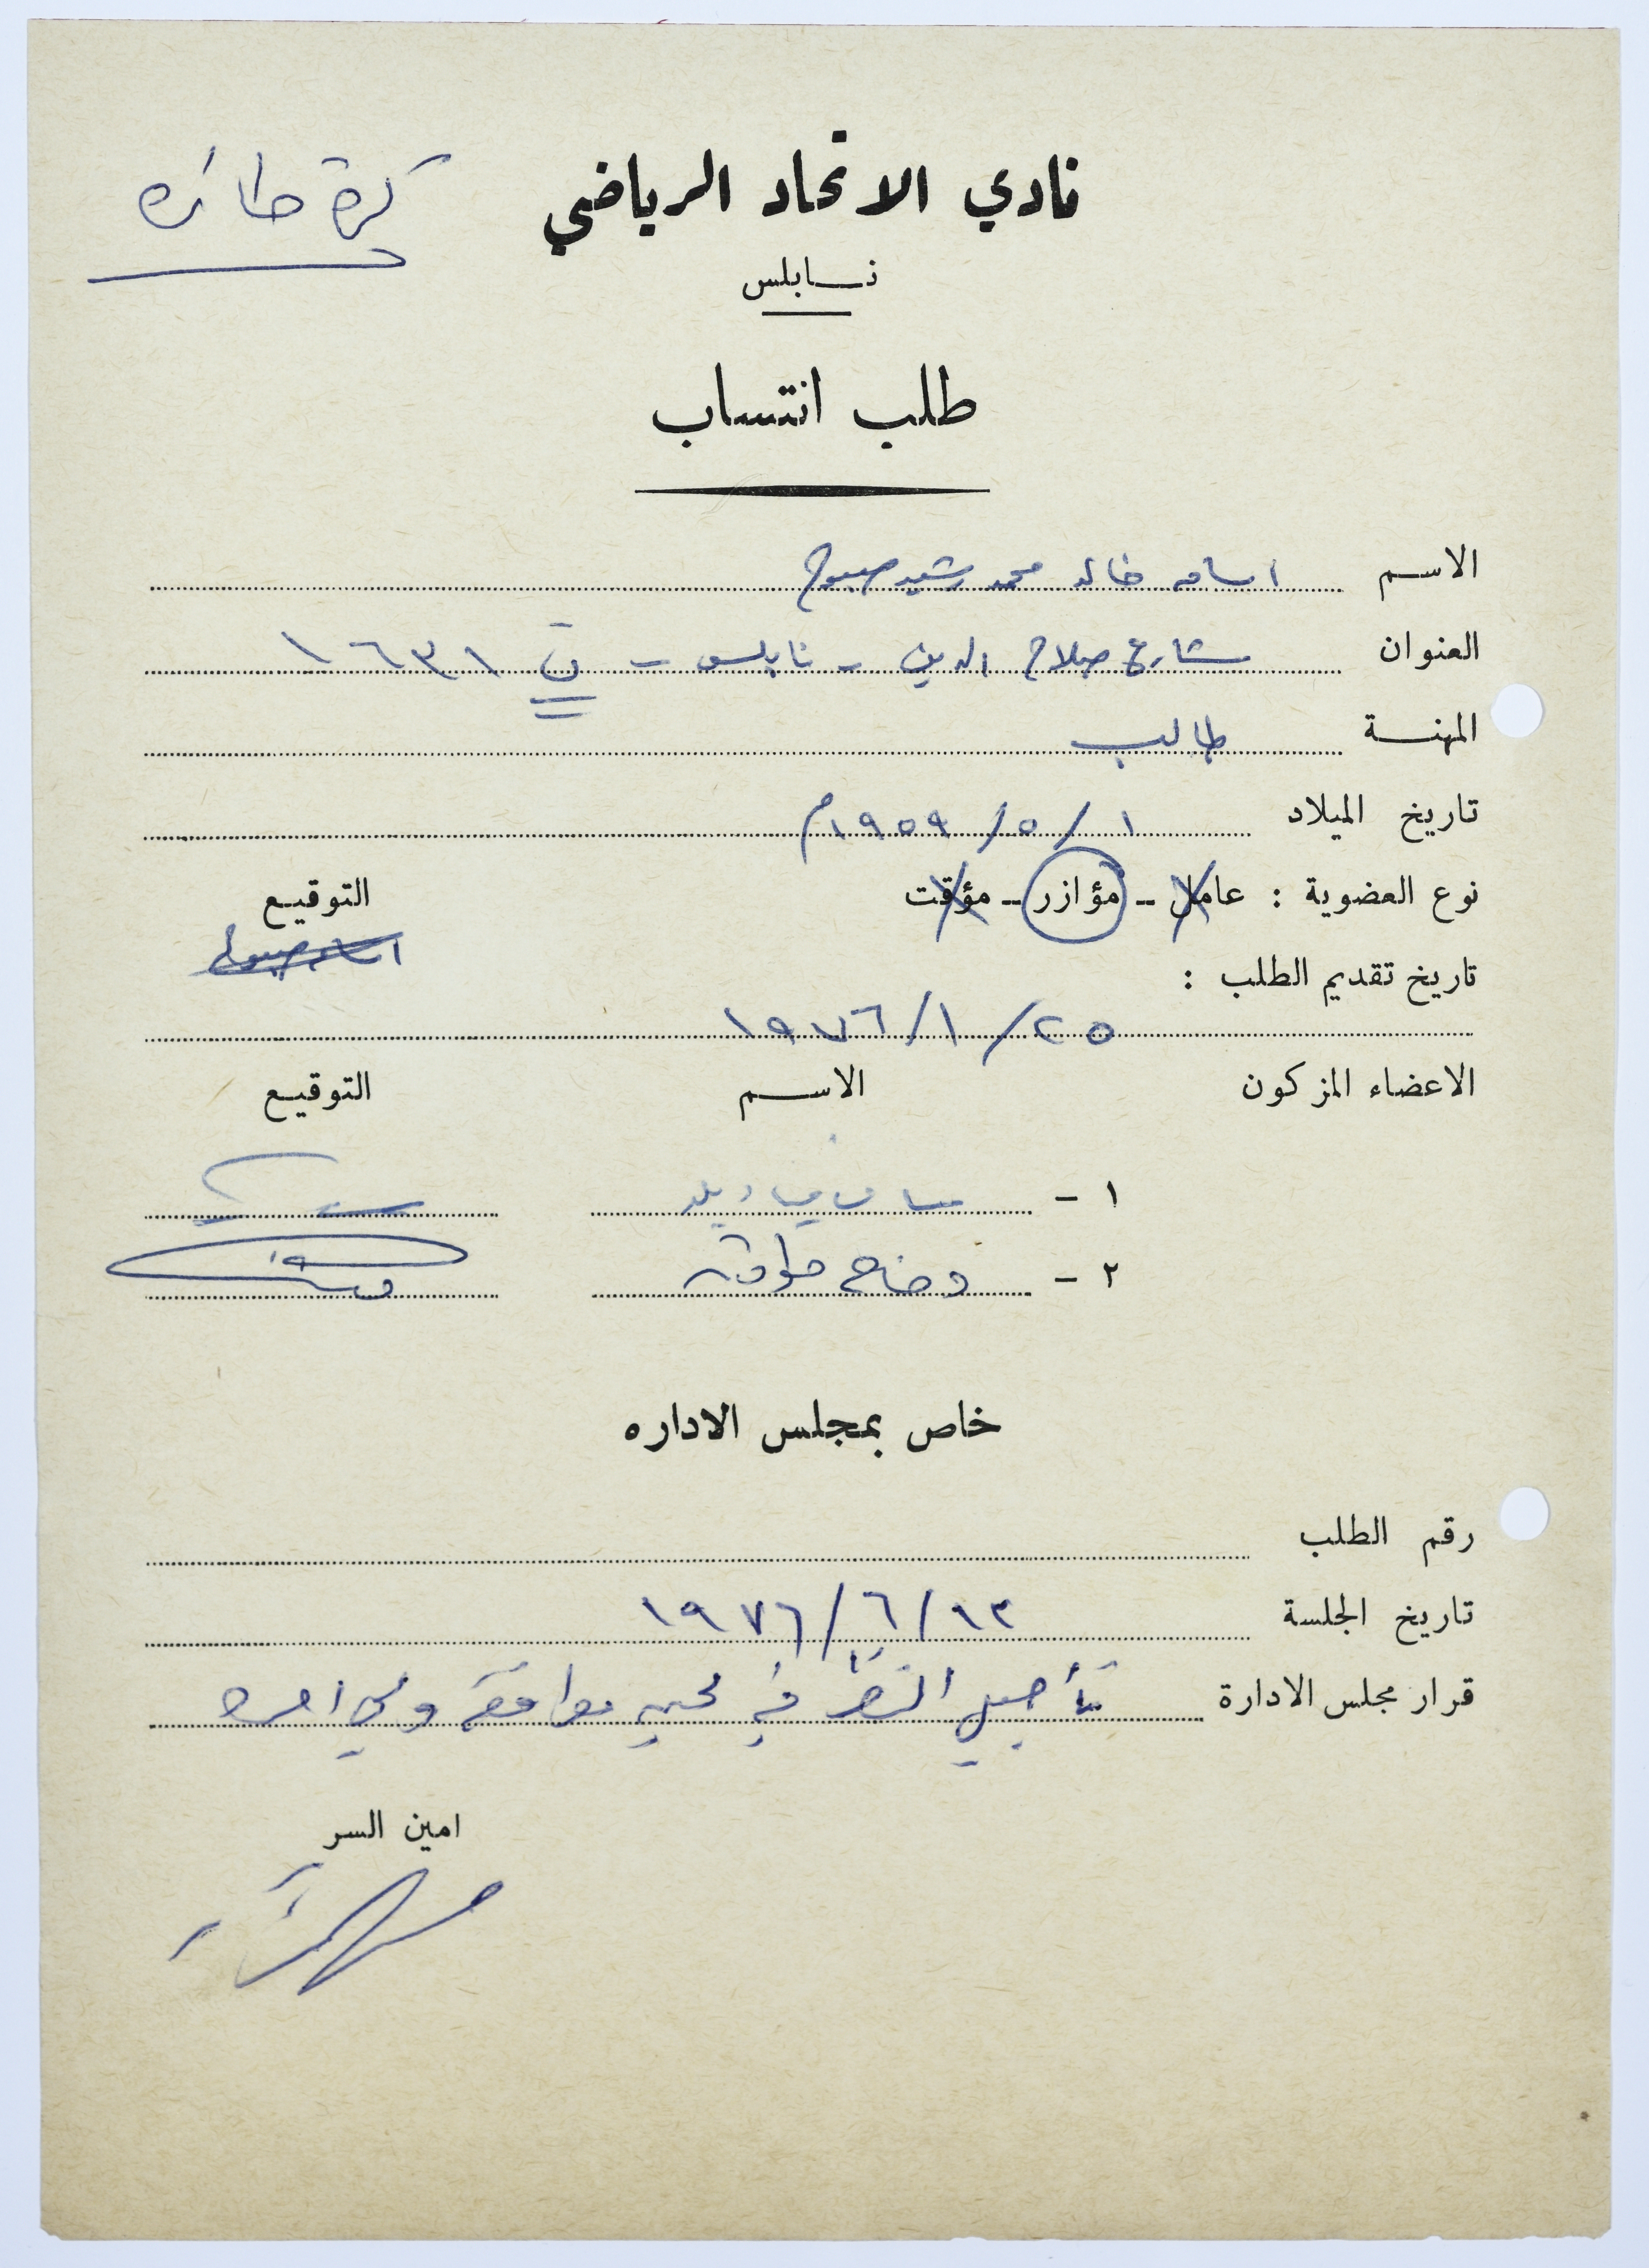 كرة طائره
نادي الاتحاد الرياضي
نابلس
طلب انتساب
الاسم اسامه خالد محمد رشيد صبوح
العنوان شارع صلاح الدين - نابلس - ت ١٦٣١
المهنة طالب
تاريخ الميلاد ١ / ٥ / ١٩٥٩م
نوع العضوية : عامل - مؤازر - مؤقت التوقيع
تاريخ تقديم الطلب :
٢٥ / ١ / ١٩٧٦
الاعضاء المزكون الاسم التوقيع
١ -
٢ - وضاح
خاص بمجلس الاداره
رقم الطلب
تاريخ الجلسة ١٣ / ٦ / ١٩٧٦
قرار مجلس الادارة تأجيل النظر في لحين موافقة ولي امره
امين السر